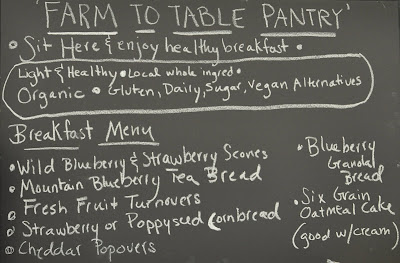 'FARM TO TABLE PANTRY'
• Sit Here & enjoy healthy breakfast •
Light & Healthy • Local whole ingred •
Organic • Gluten, Dairy, Sugar, Vegan Alternatives
Breakfast Menu
• Wild Blueberry & Strawberry Scones
• Mountain Blueberry Tea Bread
• Fresh Fruit Turnovers
• Strawberry or Poppyseed Cornbread
• Cheddar Popovers
• Blueberry
Granola
Bread
• Six Grain
Oatmeal Cake
(good w/cream)